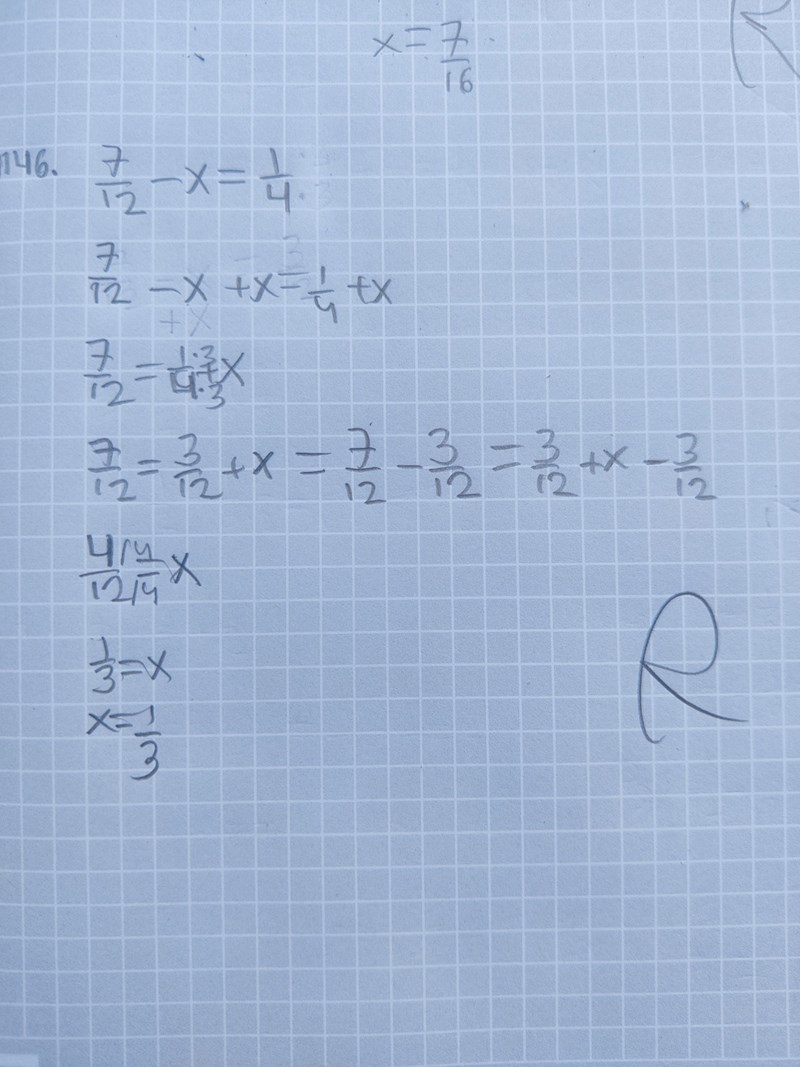 x = 7/16
1146. 7/12 - x = 1/4
7/12 - x + x = 1/4 + x
+ x
7/12 = 1·3/4·3 + x
7/12 = 3/12 + x = 7/12 - 3/12 = 3/12 + x - 3/12
4/4/12/4 x
1/3 = x
x = 1/3
R